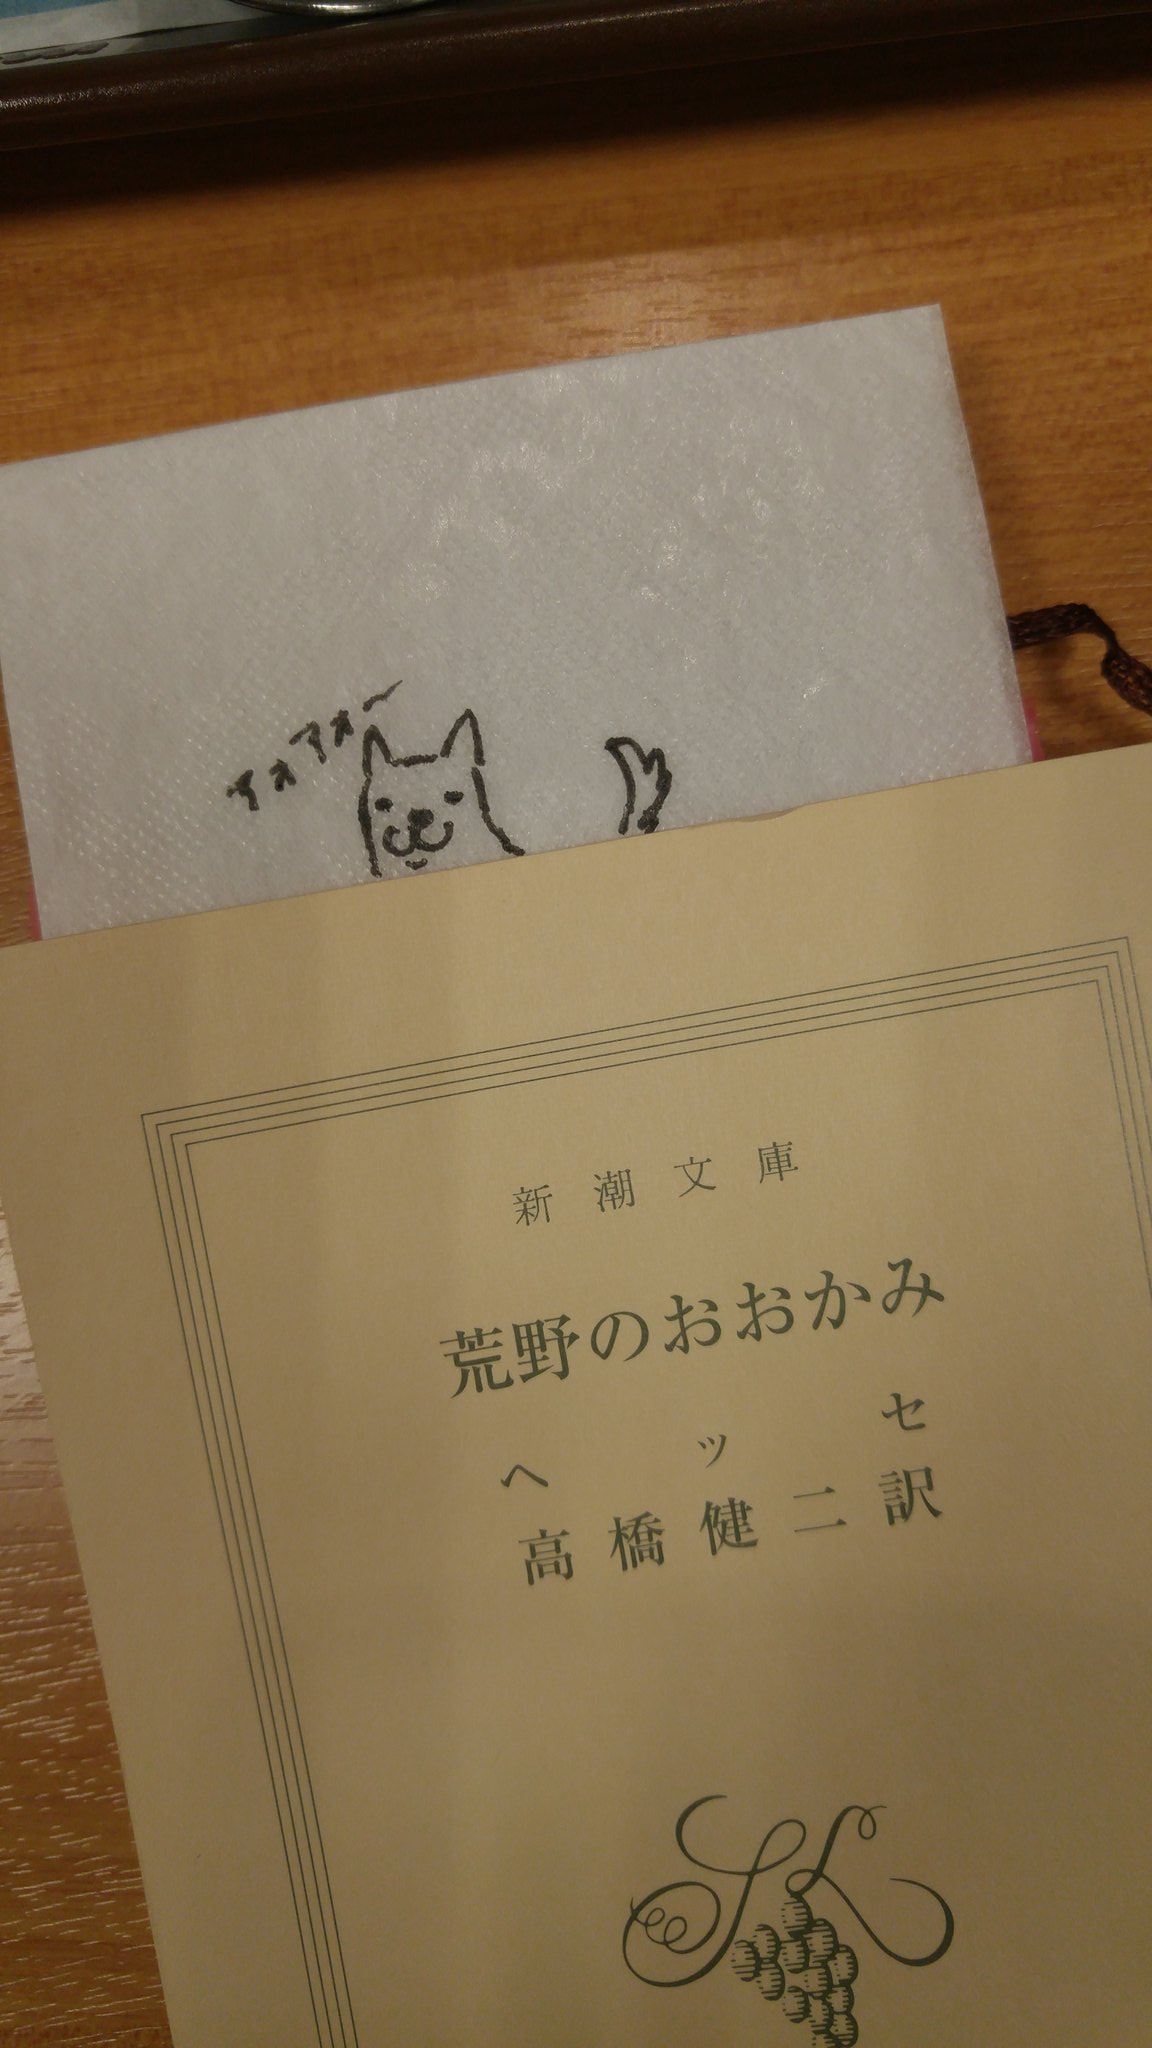 アオアオー
新潮文庫
荒野のおおかみ
ヘッセ
高橋健二訳